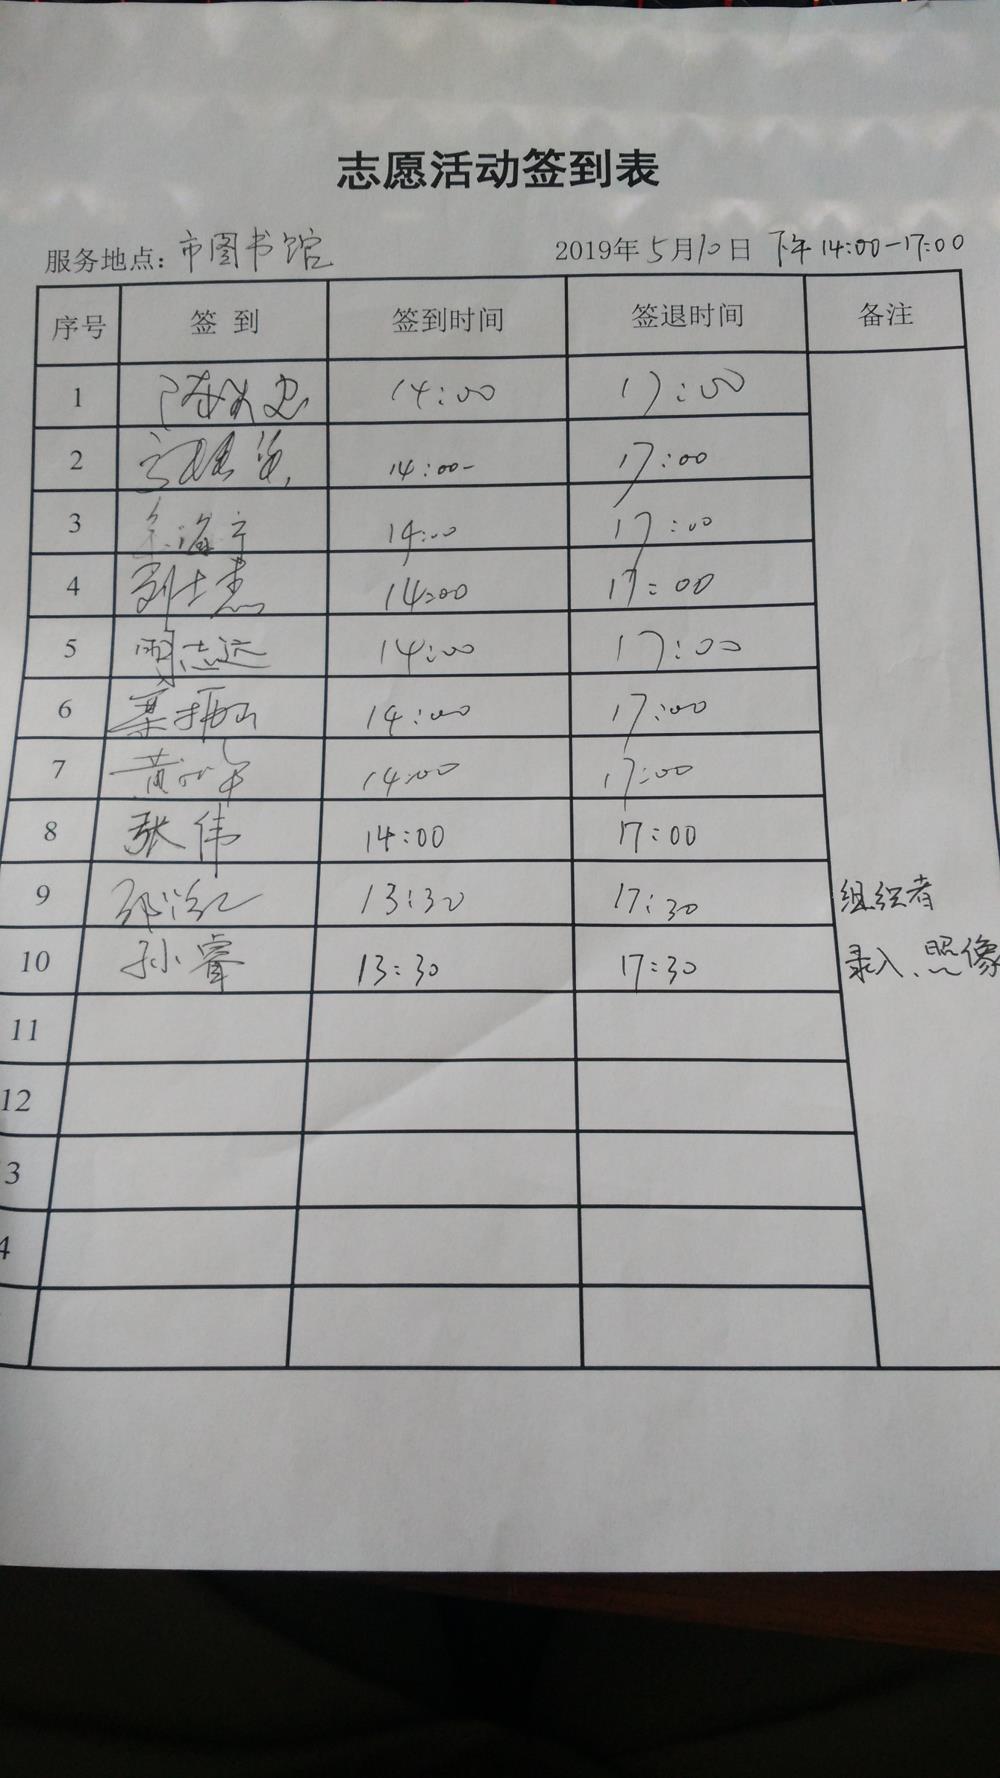 志愿活动签到表
服务地点：市图书馆 2019年5月10日 下午14:00-17:00
序号 签到 签到时间 签退时间 备注
1 14:00 17:00
2 14:00- 17:00
3 14:00 17:00
4 刘士杰 14:00 17:00
5 周志远 14:00 17:00
6 14:00 17:00
7 14:00 17:00
8 张伟 14:00 17:00
9 13:30 17:30 组织者
10 孙睿 13:30 17:30 录入、照像
11
12
3
4